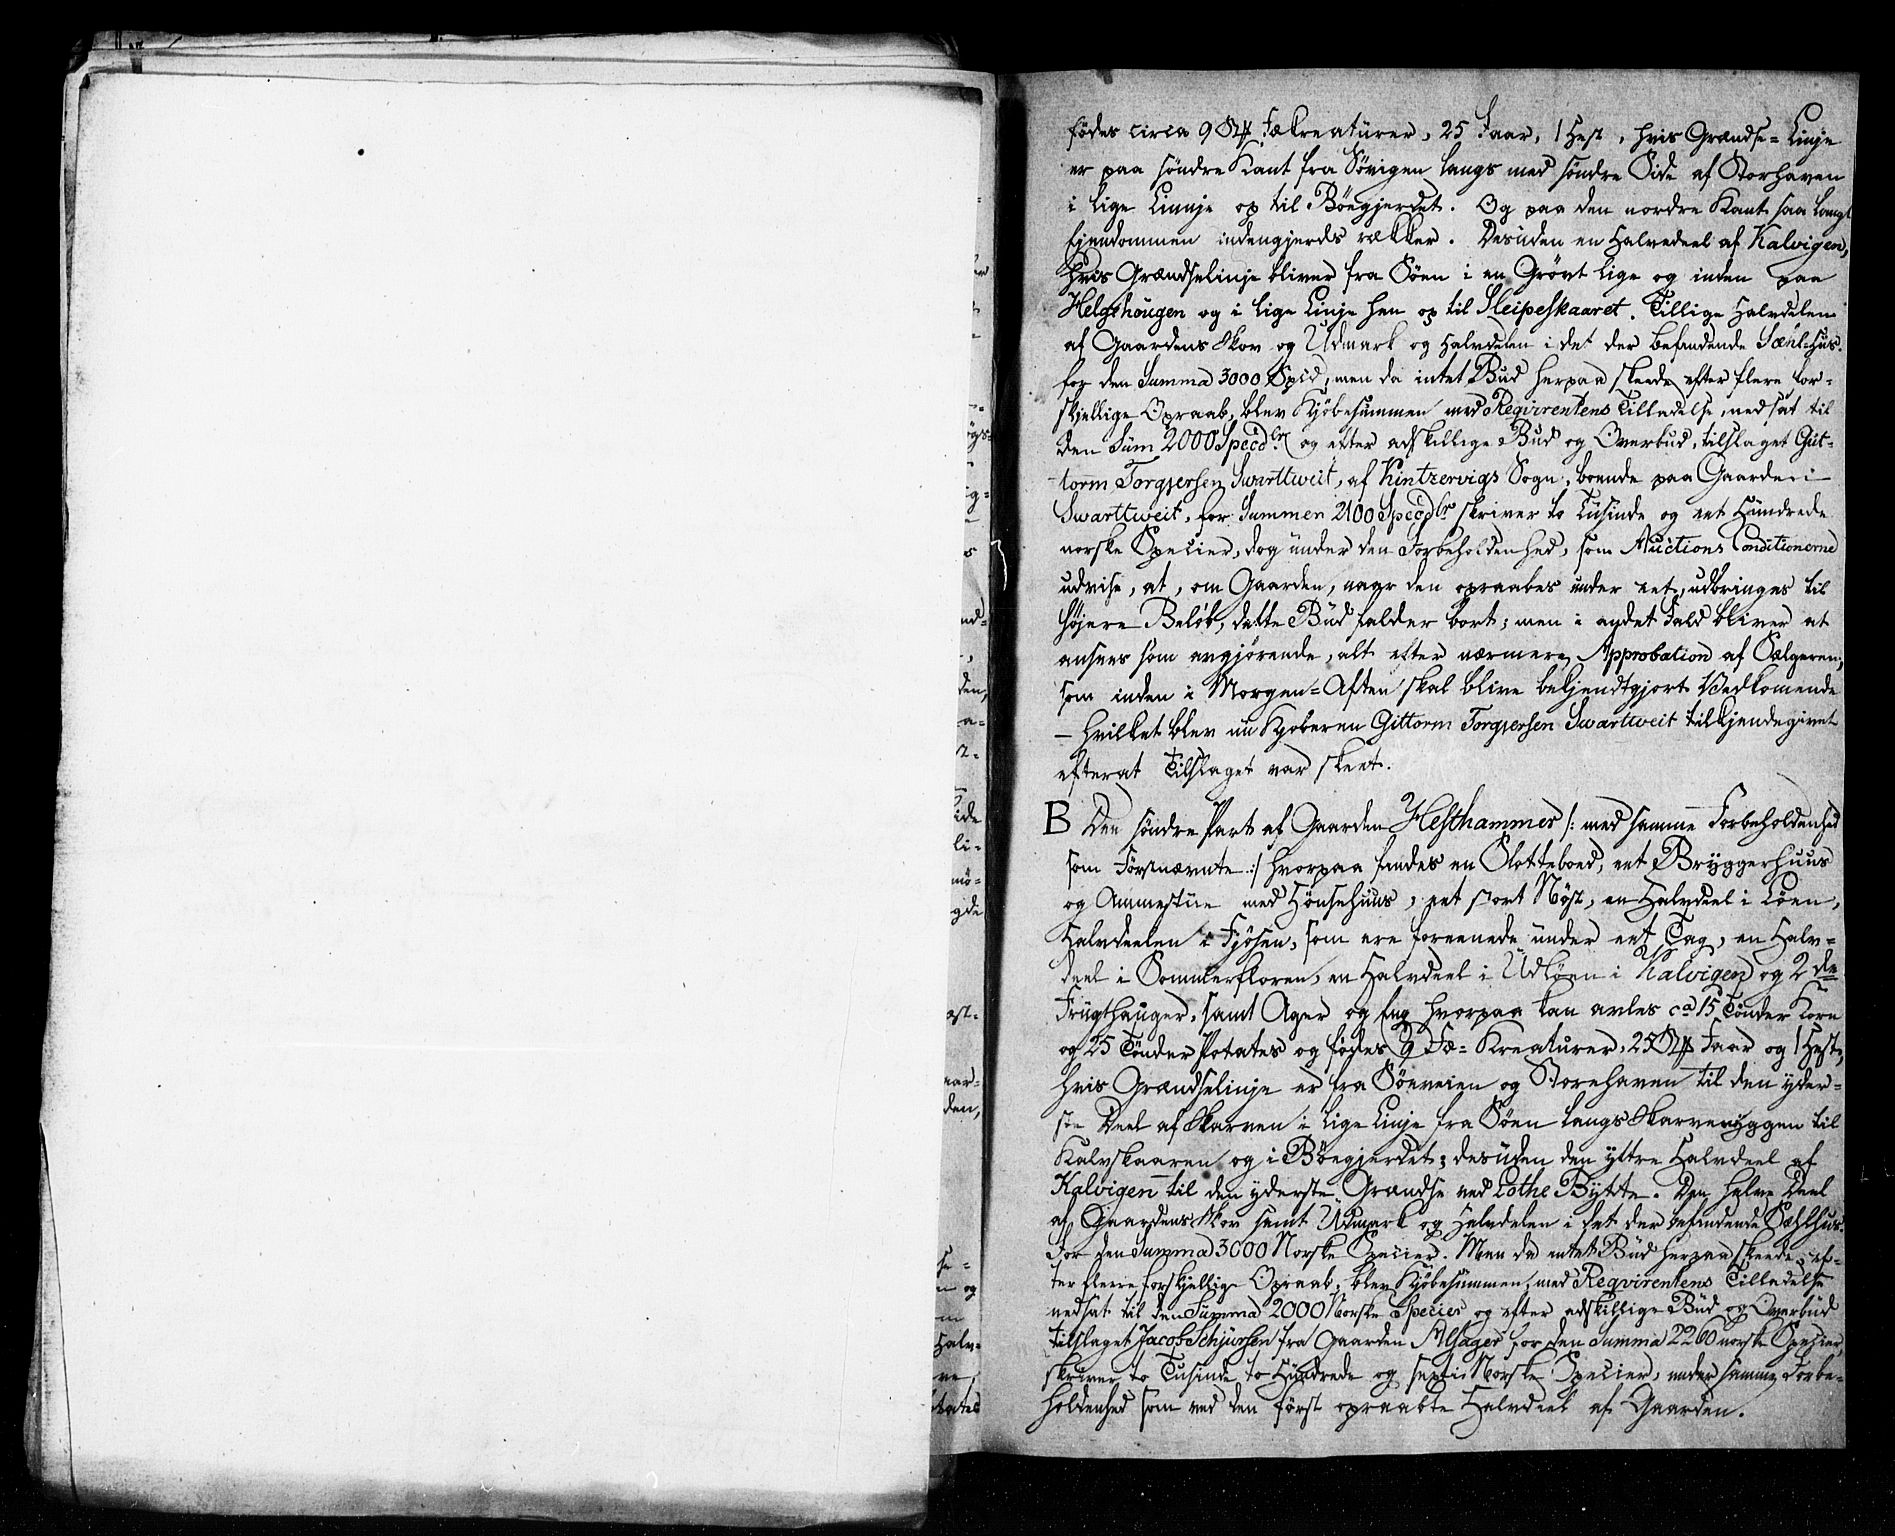 fødes circa 9 Stk Fækreaturer, 25 Faar, 1 Hest, hvis Grændse=Linje
er paa søndre Kant fra Søvigen langs med søndre Side af Storhaven
i lige Linnje op til Bøegjerdet. Og paa den nordre Kant saa langt
Ejendommen indengjerds rækker. Desuden en Halvedeel af Kalvigen,
hvis Grændselinje bliver fra Søen i en Grøvt lige og inden paa
Helgehougen og i lige Linje hen op til Sleipeskaaret. Tillige Halvdelen
af Gaardens Skov og Udmark og Halvdelen i det der befindende Sæhl=Hus.
for den Summa 3000 Spcd, men da intet Bud herpaa skeede efter flere for=
skjellige Opraab, blev Kjøbesummen med Reqvirentens Tilladelse, nedsat til
den Sum 2000 Specdlr og efter adskillige Bud og Overbud, tilslaget Gut=
torm Torgjersen Swarttweit, af Kintzervigs Sogn, boende paa Gaarden
Swarttweit, for Summen 2100 Specdlr skriver to Tusinde og eet Hundrede
norske Specier, dog under den Forbeholdenhed, som Auctions Conditionerne
udvise, at, om Gaarden, naar den opraabes under eet, udbringes til
højere Beløb, dette Bud falder bort; men i andet Fald bliver at
ansees som avgjørende, alt efter nærmere Approbation af Sælgeren,
som inden i Morgen=Aften skal blive bekjendtgjort Vedkomende
— hvilket blev nu Kjøberen Gittorm Torgjersen Swarttweit tilkjendegivet
efterat Tilslaget var skeet.
B Den søndre Part af Gaarden Hesthammer /: med samme Forbeholdenhed
som Førstnævnte :/ hvorpaa findes en Slotteboed, eet Bryggerhuus
og Ammestue med Hønsehuus, eet stort Nøst, en Halvdeel i Løen,
Halvdeelen i Fjøsen, som ere foreenede under eet Tag, en Halv=
deel i Sommerfloren, en Halvdeel i Udløen i Kalvigen og 2de
Frugthauger, samt Ager og Eng hvorpaa kan avles ca 15 Tønder Korn
og 25 Tønder Potates og fødes 9 Fæ=Kreaturer, 25 Stk Faar og 1 Hest,
hvis Grændselinje er fra Søeveien og Storehaven til den yder=
ste Deel af Skarven i lige Linje fra Søen langs Skarveryggen til
Kalvskaaren og i Bøegjerdet; desuden den yttre Halvdeel af
Kalvigen til den yderste Grændse ved Lothe Bytte. Den halve Deel
af Gaardens Skov samt Udmark og Halvdelen i det der befindende Sæhlhus.
For den Summa 3000 Norske Specier. Men da intet Bud herpaa skeede, ef=
ter flere forskjellige Opraab, blev Kjøbesummen, med Reqvirentens Tilladelse
nedsat til den Summa 2000 Norske Species og efter adskillige Bud og Overbud
tilslaget Jacob Schjursen fra Gaarden Alsager for den Summa 2260 norske Specier,
skriver to Tusinde to Hundrede og sexti Norske Specier, under samme Forbe=
holdenhed som ved den først opraabte Halvdeel af Gaarden.